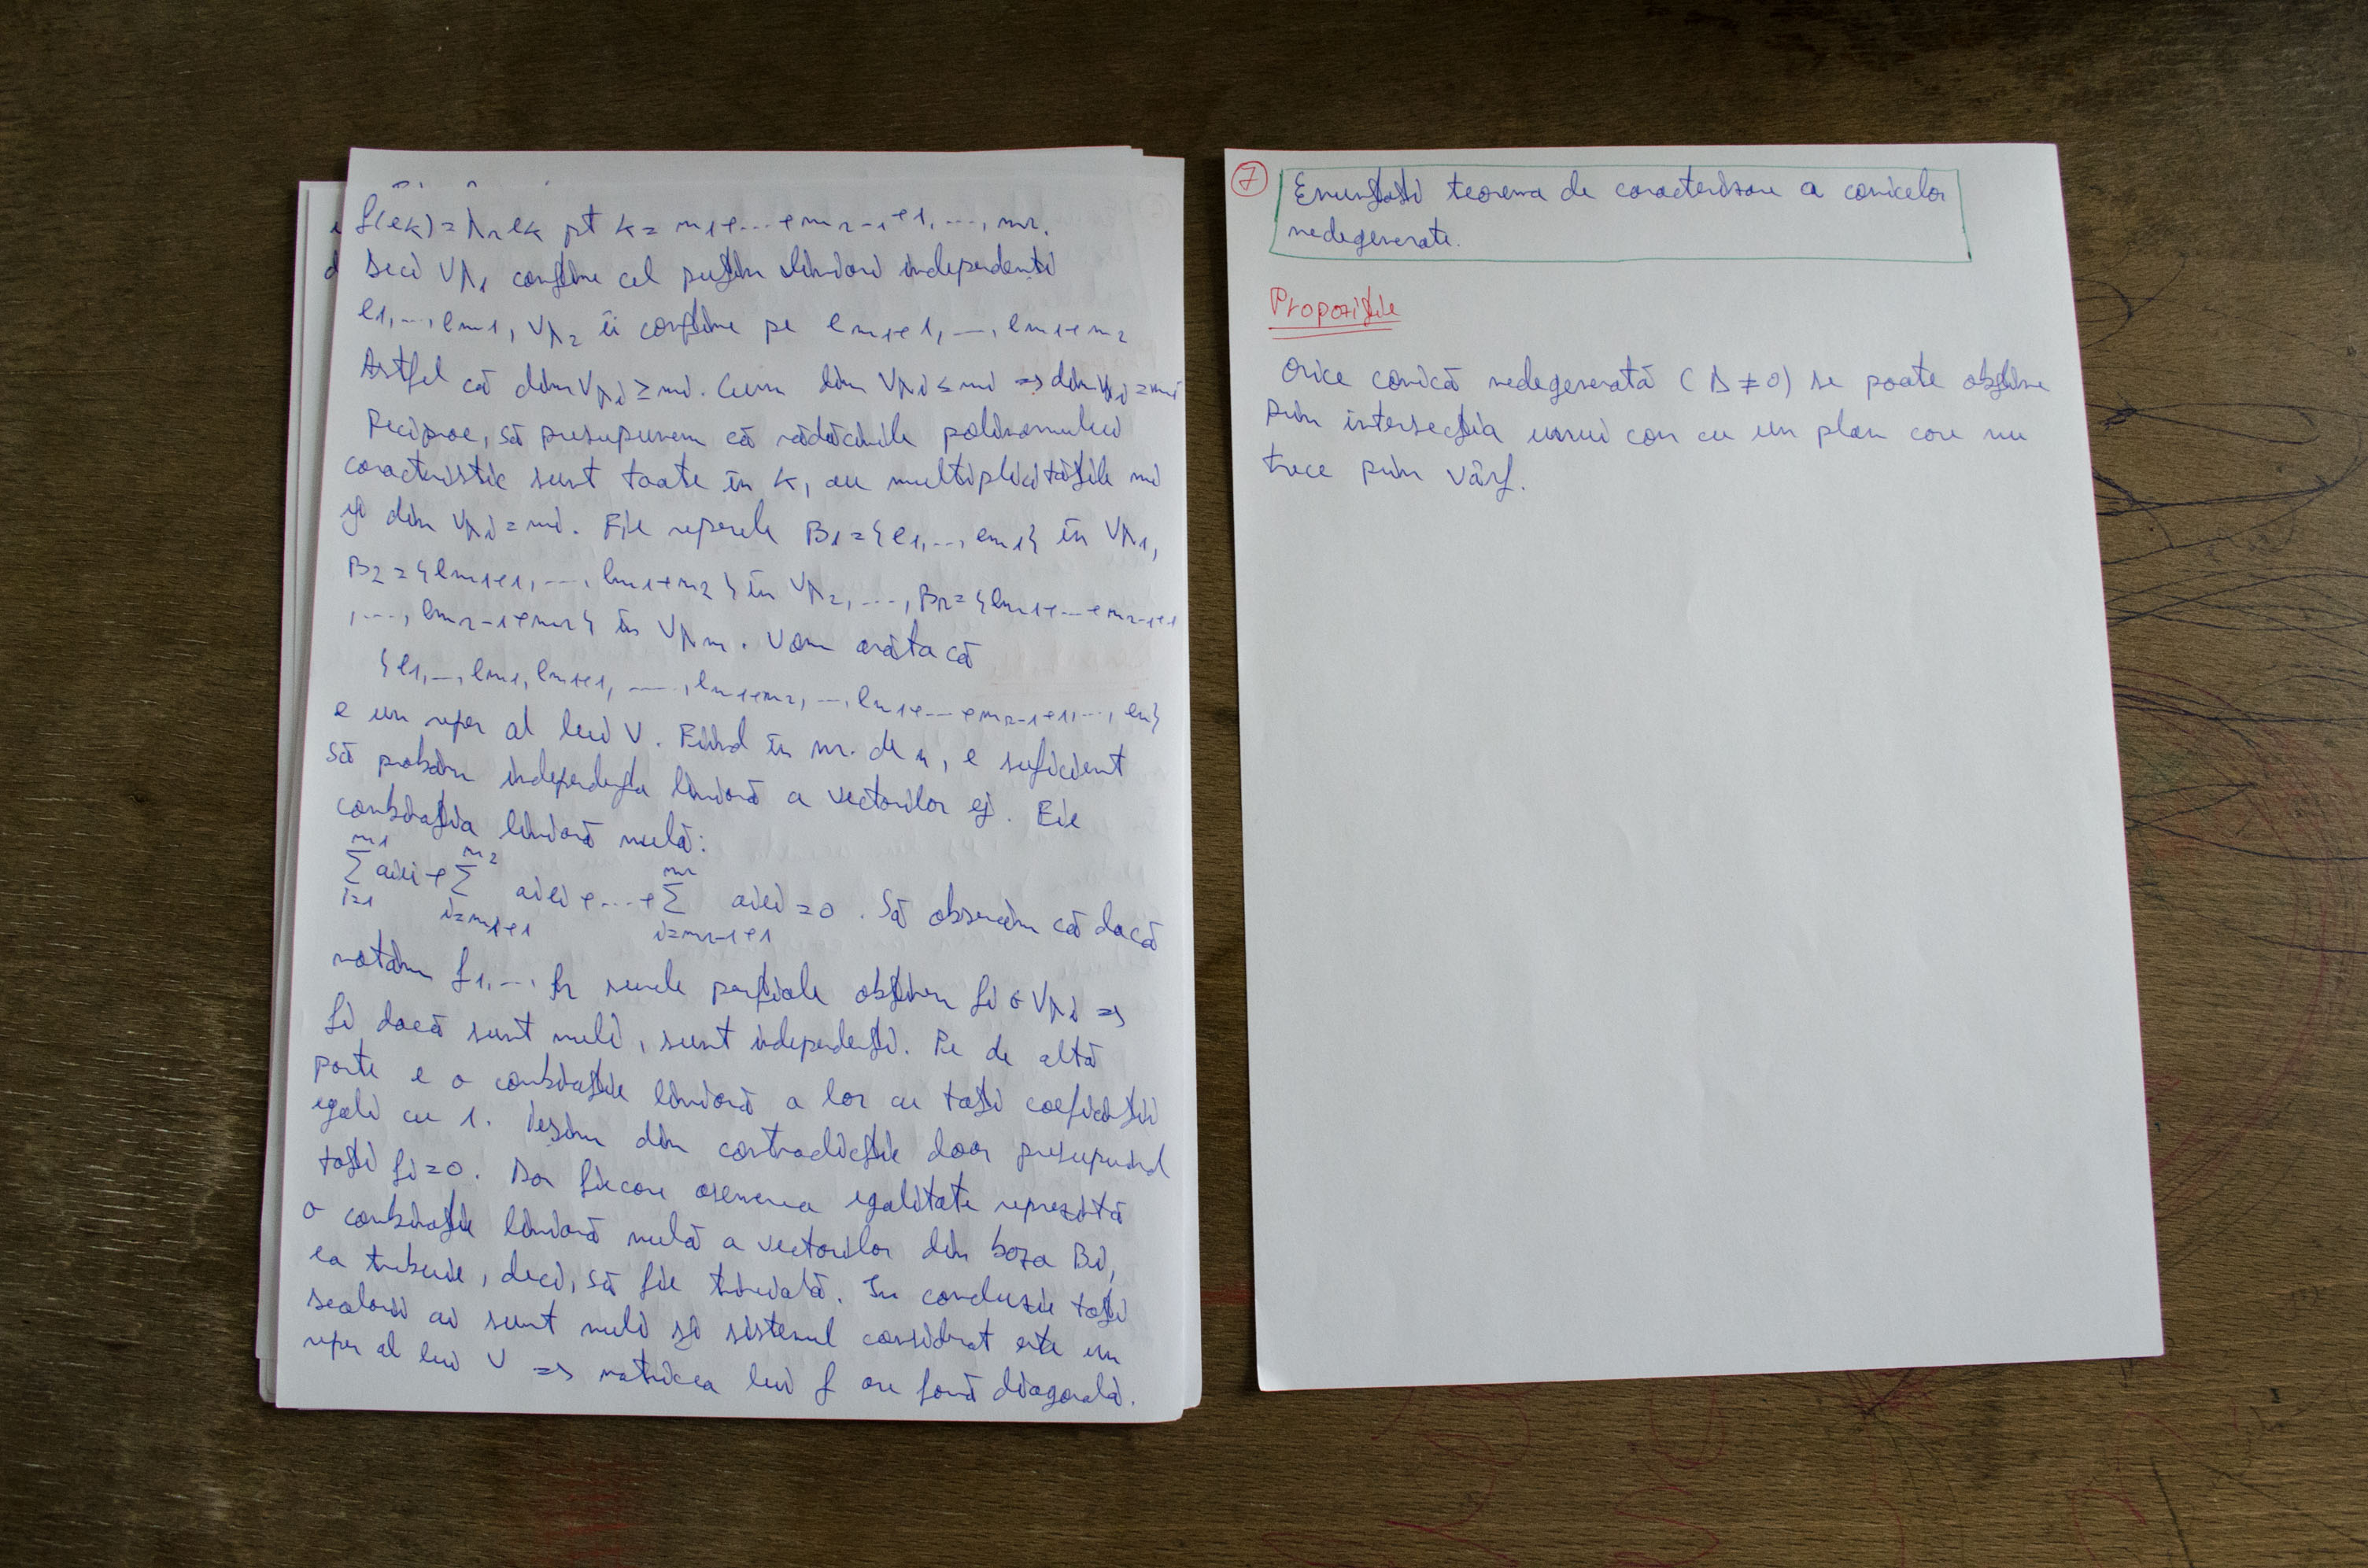 f(ek) = λr ek pt k = m1+...+mr-1+1, ..., mr.
Deci Vλ1 conține cel puțin liniari independenți
e1, ..., em1, Vλ2 îi conține pe em1+1, ..., em1+m2
Astfel că dim Vλi ≥ mi. Cum dim Vλi ≤ mi => dim Vλi = mi
Reciproc, să presupunem că rădăcinile polinomului
caracteristic sunt toate în K, au multiplicitățile mi
și dim Vλi = mi. Fie reperele B1 = {e1, ..., em1} în Vλ1,
B2 = {em1+1, ..., em1+m2} în Vλ2, ..., Br = {em1+...+mr-1+1
, ..., emr-1+mr} în Vλm. Vom arăta că
{e1, ..., em1, em1+1, ..., em1+m2, ..., em1+...+mr-1+1, ..., en}
e un reper al lui V. Fiind în nr. de n, e suficient
să probăm independența liniară a vectorilor ej. Fie
combinația liniară nulă:
m1 Σ i=1 aiei + m2 Σ i=m1+1 aiei + ... + mr Σ i=mr-1+1 aiei = 0. Să observăm că dacă
notăm f1, ..., fr sumele parțiale obținem fi ∈ Vλi =>
fi dacă sunt nuli, sunt independenți. Pe de altă
parte e o combinație liniară a lor cu toți coeficienții
egali cu 1. Ieșim din contradicție doar presupunând
toți fi = 0. Dar fiecare asemenea egalitate reprezintă
o combinație liniară nulă a vectorilor din baza Bi,
ea trebuie, deci, să fie trivială. În concluzie toți
scalarii ai sunt nuli și sistemul considerat este un
reper al lui V => matricea lui f are formă diagonală.
7 Enunțați teorema de caracterizare a conicelor
nedegenerate.
Propoziție
Orice conică nedegenerată (Δ ≠ 0) se poate obține
prin intersecția unui con cu un plan care nu
trece prin vârf.